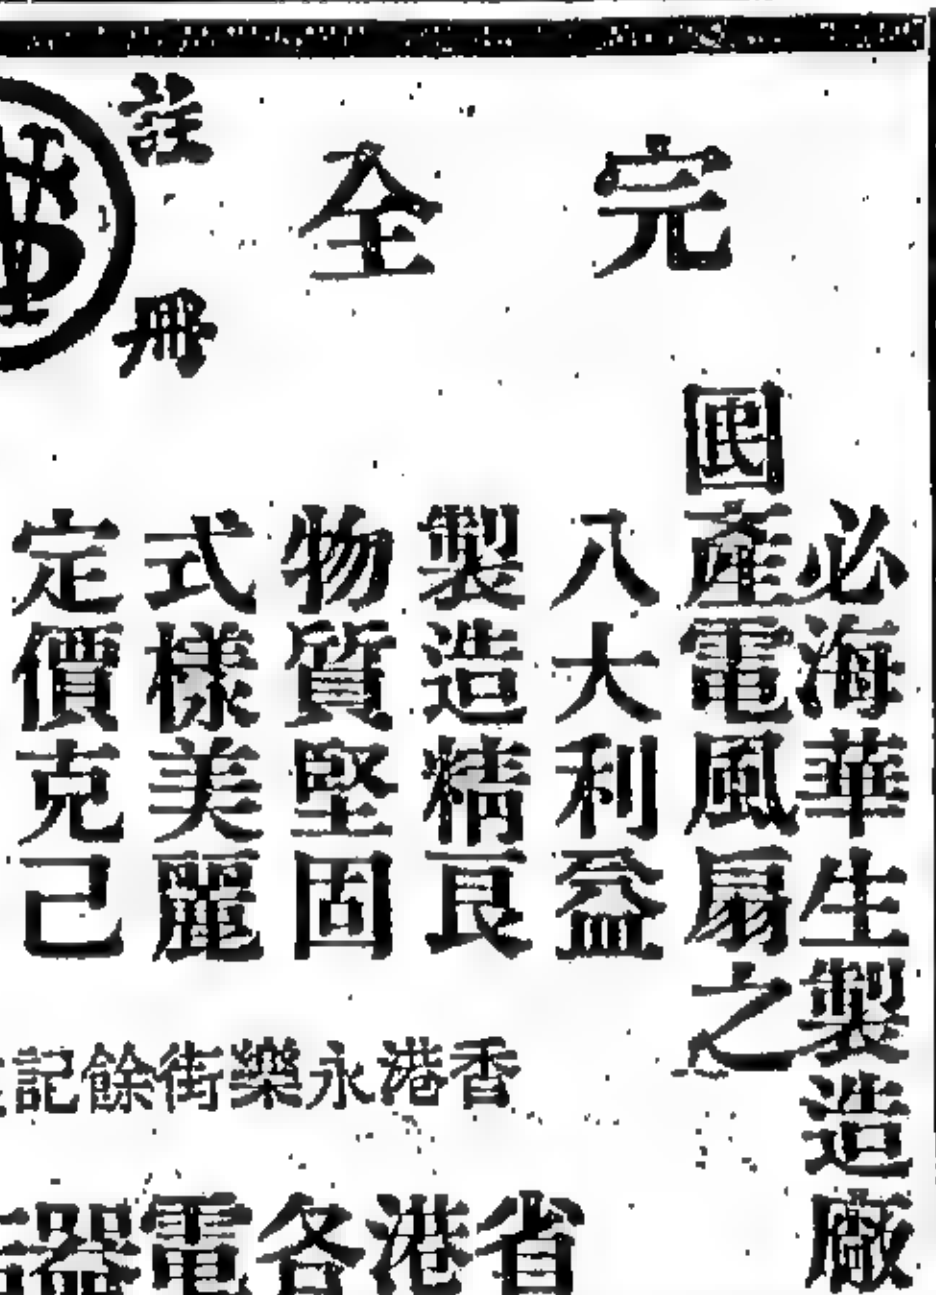 完全
註冊
必海華生製造廠
囻產電風扇之
八大利益
製造精良
物質堅固
式樣美麗
定價克己
香港永樂街餘記
省港各電器